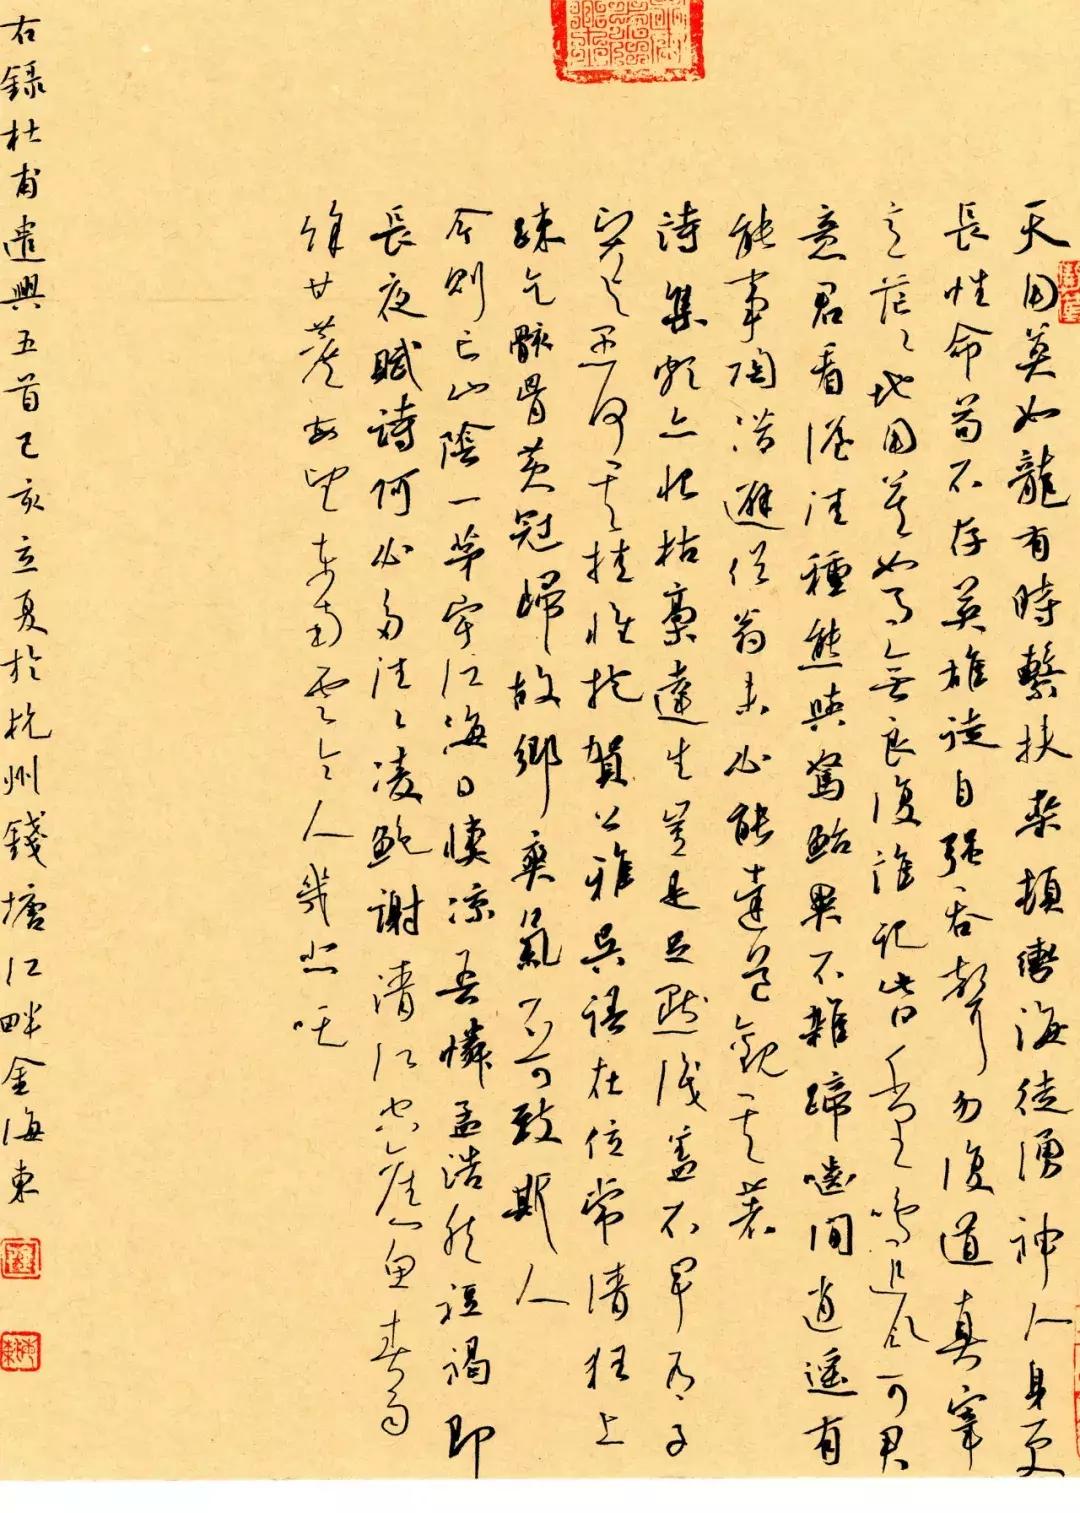 天用莫如龍有時繫扶桑頓轡海徒湧神人身更
長性命苟不存英雄徒自強吞聲勿復道真宰
意茫〻地用莫如馬無良復誰記此日千里鳴追風可君
意君看渥洼種態與駑駘異不雜蹄嚙間逍遙有
能事陶潛避俗翁未必能達道觀其著
詩集頗亦恨枯槁達生豈是足默識蓋不早有子
賢與愚何其挂懷抱賀公雅吳語在位常清狂上
疎乞骸骨黃冠歸故鄉爽氣不可致斯人
今則亡山陰一茅宇江海日悽涼吾憐孟浩然裋褐即
長夜賦詩何必多往〻凌鮑謝清江空舊魚春雨
餘甘蔗每望東南雲令人幾悲吒
右錄杜甫遣興五首己亥立夏於杭州錢塘江畔金海東